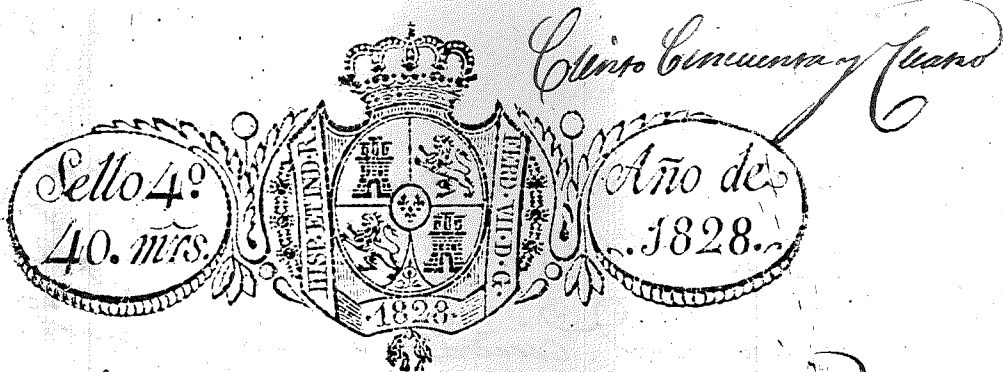 Ciento Cincuenta y Cuatro
Sello 4º
40. mrs.
HISP. ET IND. R.
FERD. VII. D. G.
1828
Año de
1828.